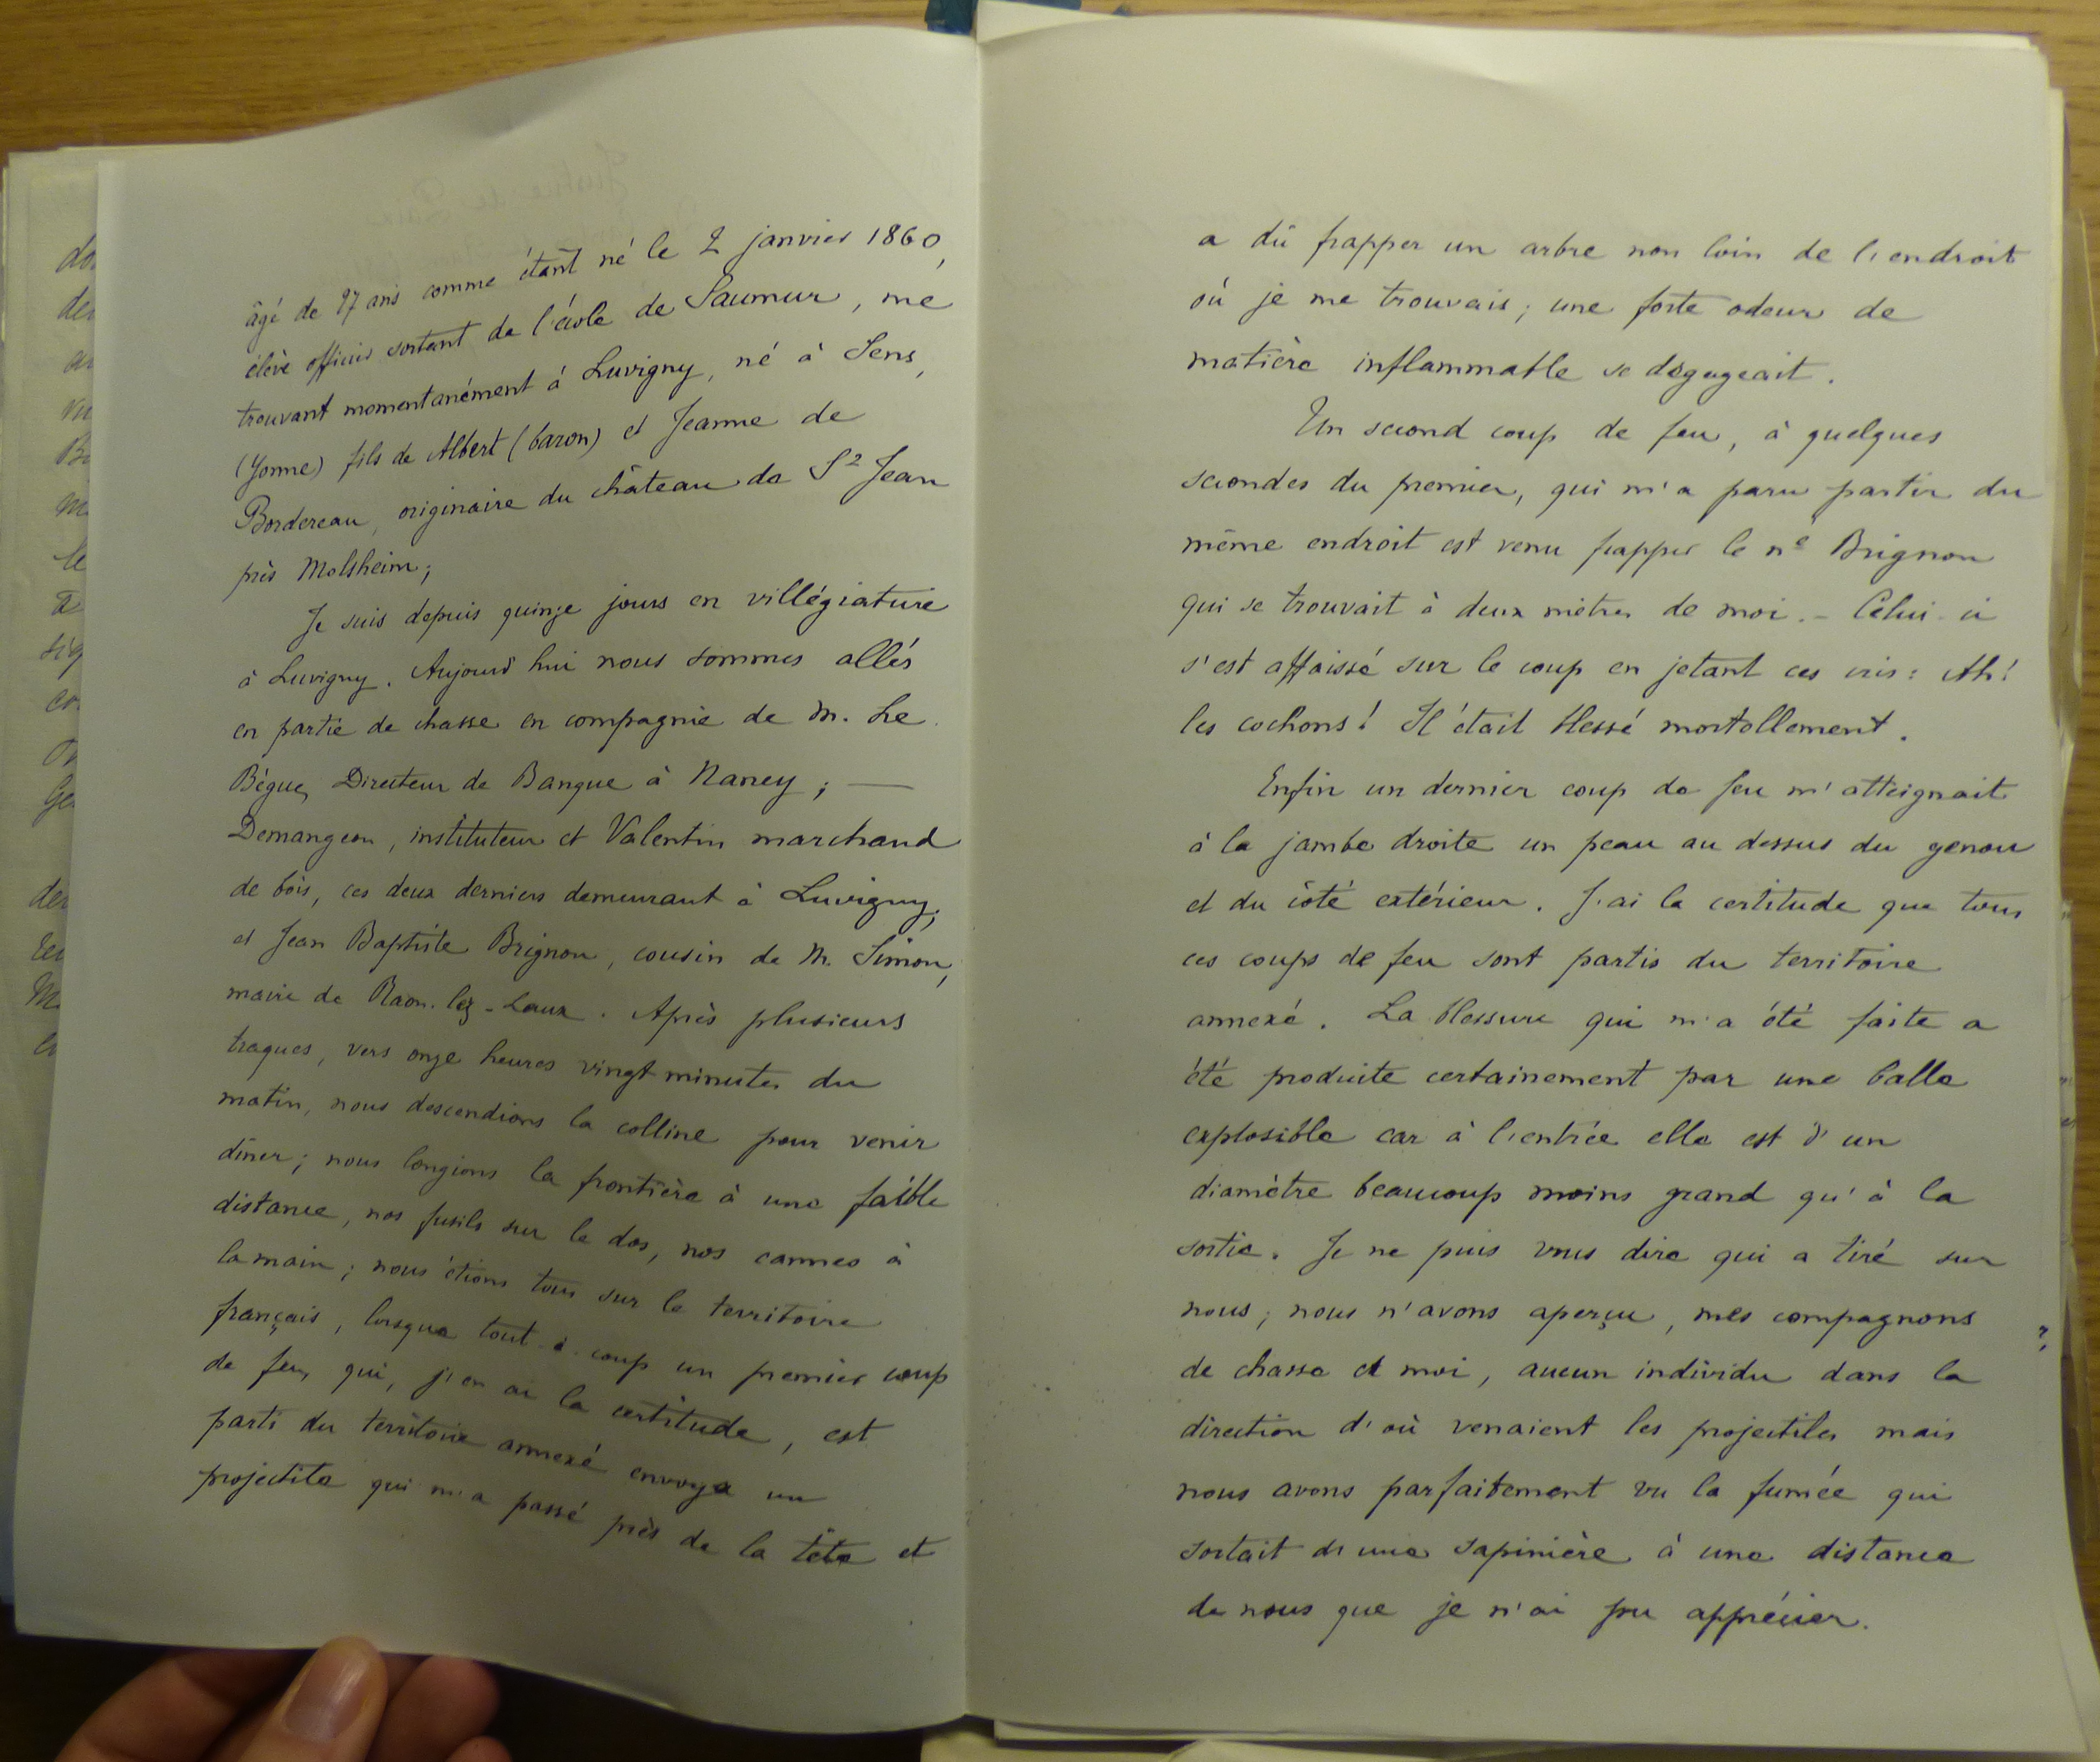 âgé de 27 ans comme étant né le 2 janvier 1860,
élève officier sortant de l'école de Saumur, me
trouvant momentanément à Luvigny, né à Sens,
(Yonne) fils de Albert (baron) et Jeanne de
Bordereau, originaire du château de St Jean
près Molsheim;
Je suis depuis quinze jours en villégiature
à Luvigny. Aujourd'hui nous sommes allés
en partie de chasse en compagnie de M. Le
Bègue, Directeur de Banque à Nancy; —
Demangeon, instituteur et Valentin marchand
de bois, ces deux derniers demeurant à Luvigny;
et Jean Baptiste Brignon, cousin de M. Simon,
maire de Raon-lez-Leaux. Après plusieurs
traques, vers onze heures vingt minutes du
matin, nous descendions la colline pour venir
dîner; nous longions la frontière à une faible
distance, nos fusils sur le dos, nos cannes à
la main; nous étions tous sur le territoire
français, lorsque tout-à-coup un premier coup
de feu, qui, j'en ai la certitude, est
parti du territoire annexé envoya un
projectile qui m'a passé près de la tête et
a dû frapper un arbre non loin de l'endroit
où je me trouvais; une forte odeur de
matière inflammable se dégageait.
Un second coup de feu, à quelques
secondes du premier, qui m'a paru partir du
même endroit est venu frapper le né Brignon
qui se trouvait à deux mètres de moi. - Celui-ci
s'est affaissé sur le coup en jetant ces cris: Ah!
les cochons! Il était blessé mortellement.
Enfin un dernier coup de feu m'atteignait
à la jambe droite un peau au dessus du genou
et du côté extérieur. J'ai la certitude que tous
ces coups de feu sont partis du territoire
annexé. La blessure qui m'a été faite a
été produite certainement par une balle
explosible car à l'entrée elle est d'un
diamètre beaucoup moins grand qu'à la
sortie. Je ne puis vous dire qui a tiré sur
nous; nous n'avons aperçu, mes compagnons
de chasse et moi, aucun individu dans la
direction d'où venaient les projectiles mais
nous avons parfaitement vu la fumée qui
sortait d'une sapinière à une distance
de nous que je n'ai pu apprécier.